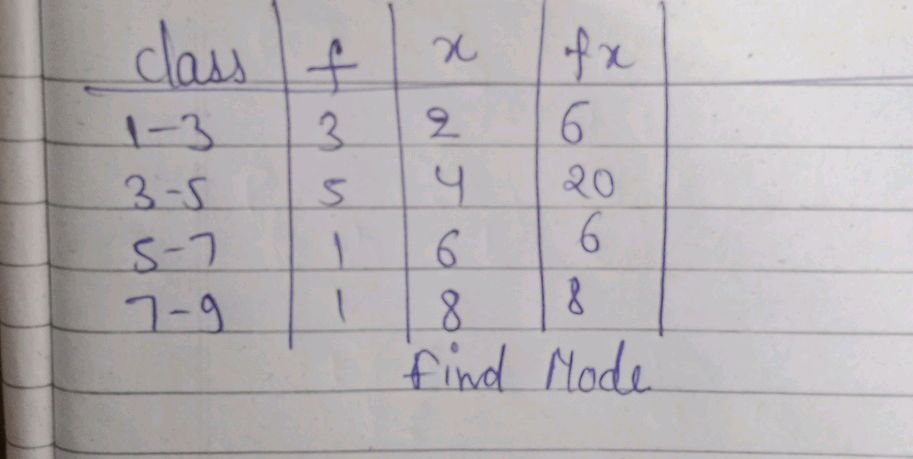 class f x fx
1-3 3 2 6
3-5 5 4 20
5-7 1 6 6
7-9 1 8 8
find Mode